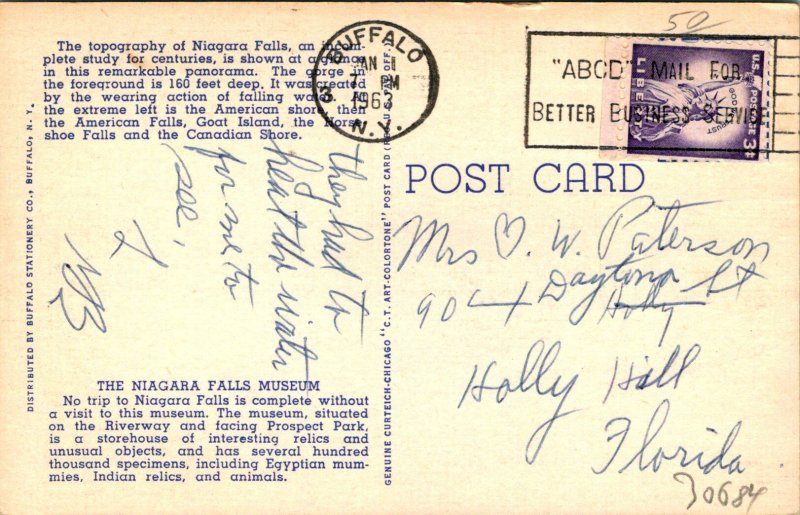 The topography of Niagara Falls, an incom-
plete study for centuries, is shown at a glance
in this remarkable panorama. The gorge in
the foreground is 160 feet deep. It was created
by the wearing action of falling water. At
the extreme left is the American shore, then
the American Falls, Goat Island, the Horse-
shoe Falls and the Canadian Shore.
they had to
heat the water
for me to
see,
DISTRIBUTED BY BUFFALO STATIONERY CO., BUFFALO, N. Y.
THE NIAGARA FALLS MUSEUM
No trip to Niagara Falls is complete without
a visit to this museum. The museum, situated
on the Riverway and facing Prospect Park,
is a storehouse of interesting relics and
unusual objects, and has several hundred
thousand specimens, including Egyptian mum-
mies, Indian relics, and animals.
GENUINE CURTEICH-CHICAGO "C.T. ART-COLORTONE" POST CARD (REG. U.S. PAT. OFF.)
BUFFALO
PM
1963
N.Y.
50
"ABCD" MAIL FOR
BETTER BUSINESS SERVICE
LIBERTY
IN GOD WE TRUST
U.S. POSTAGE
3¢
POST CARD
Mrs O. W. Paterson
904 Daytona St
Holly
Holly Hill
Florida
30684